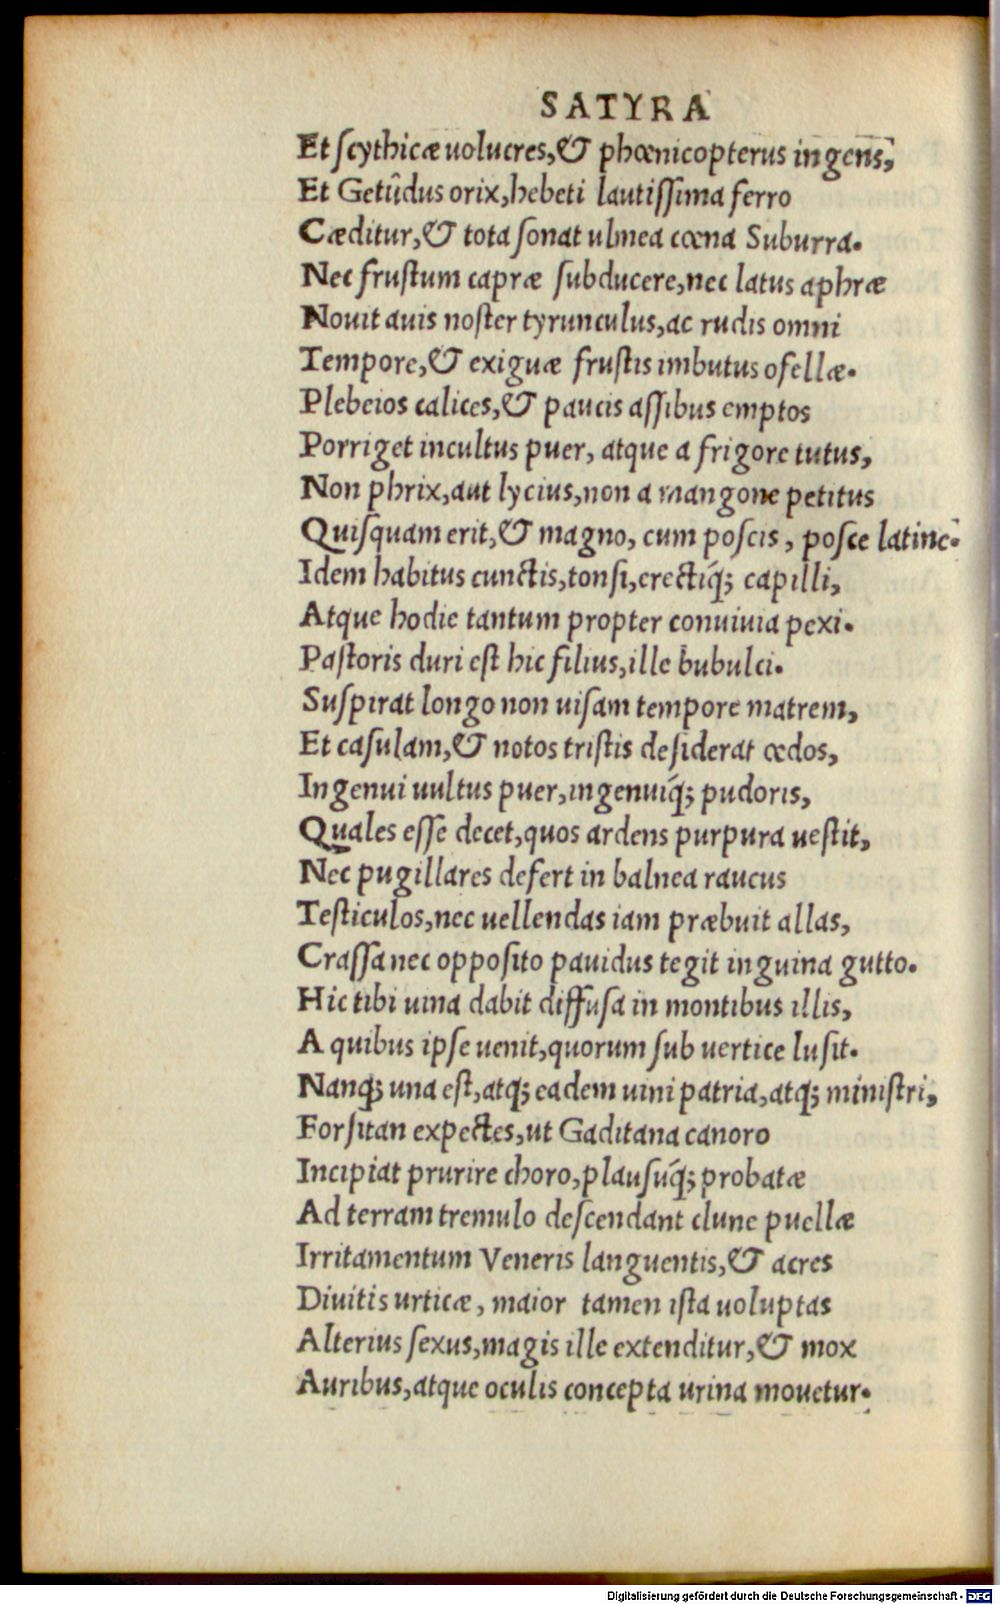 SATYRA
Et scythicæ uolucres,& phœnicopterus ingens,
Et Getūdus orix,hebeti lautissima ferro
Cæditur,& tota sonat ulmea cœna Suburra.
Nec frustum capræ subducere,nec latus aphræ
Nouit auis noster tyrunculus,ac rudis omni
Tempore,& exiguæ frustis imbutus ofellæ.
Plebeios calices,& paucis assibus emptos
Porriget incultus puer, atque a frigore tutus,
Non phrix,aut lycius,non a mangone petitus
Quisquam erit,& magno, cum poscis, posce latine.
Idem habitus cunctis,tonsi,erectiq́; capilli,
Atque hodie tantum propter conuiuia pexi.
Pastoris duri est hic filius,ille bubulci.
Suspirat longo non uisam tempore matrem,
Et casulam,& notos tristis desiderat œdos,
Ingenui uultus puer,ingenuiq́; pudoris,
Quales esse decet,quos ardens purpura uestit,
Nec pugillares defert in balnea raucus
Testiculos,nec uellendas iam præbuit allas,
Crassa nec opposito pauidus tegit inguina gutto.
Hic tibi uina dabit diffusa in montibus illis,
A quibus ipse uenit,quorum sub uertice lusit.
Nanq; una est,atq; eadem uini patria,atq; ministri,
Forsitan expectes,ut Gaditana canoro
Incipiat prurire choro,plausuq́; probatæ
Ad terram tremulo descendant clune puellæ
Irritamentum Veneris languentis,& acres
Diuitis urticæ, maior tamen ista uoluptas
Alterius sexus,magis ille extenditur,& mox
Auribus,atque oculis concepta urina mouetur.
Digitalisierung gefördert durch die Deutsche Forschungsgemeinschaft - DFG